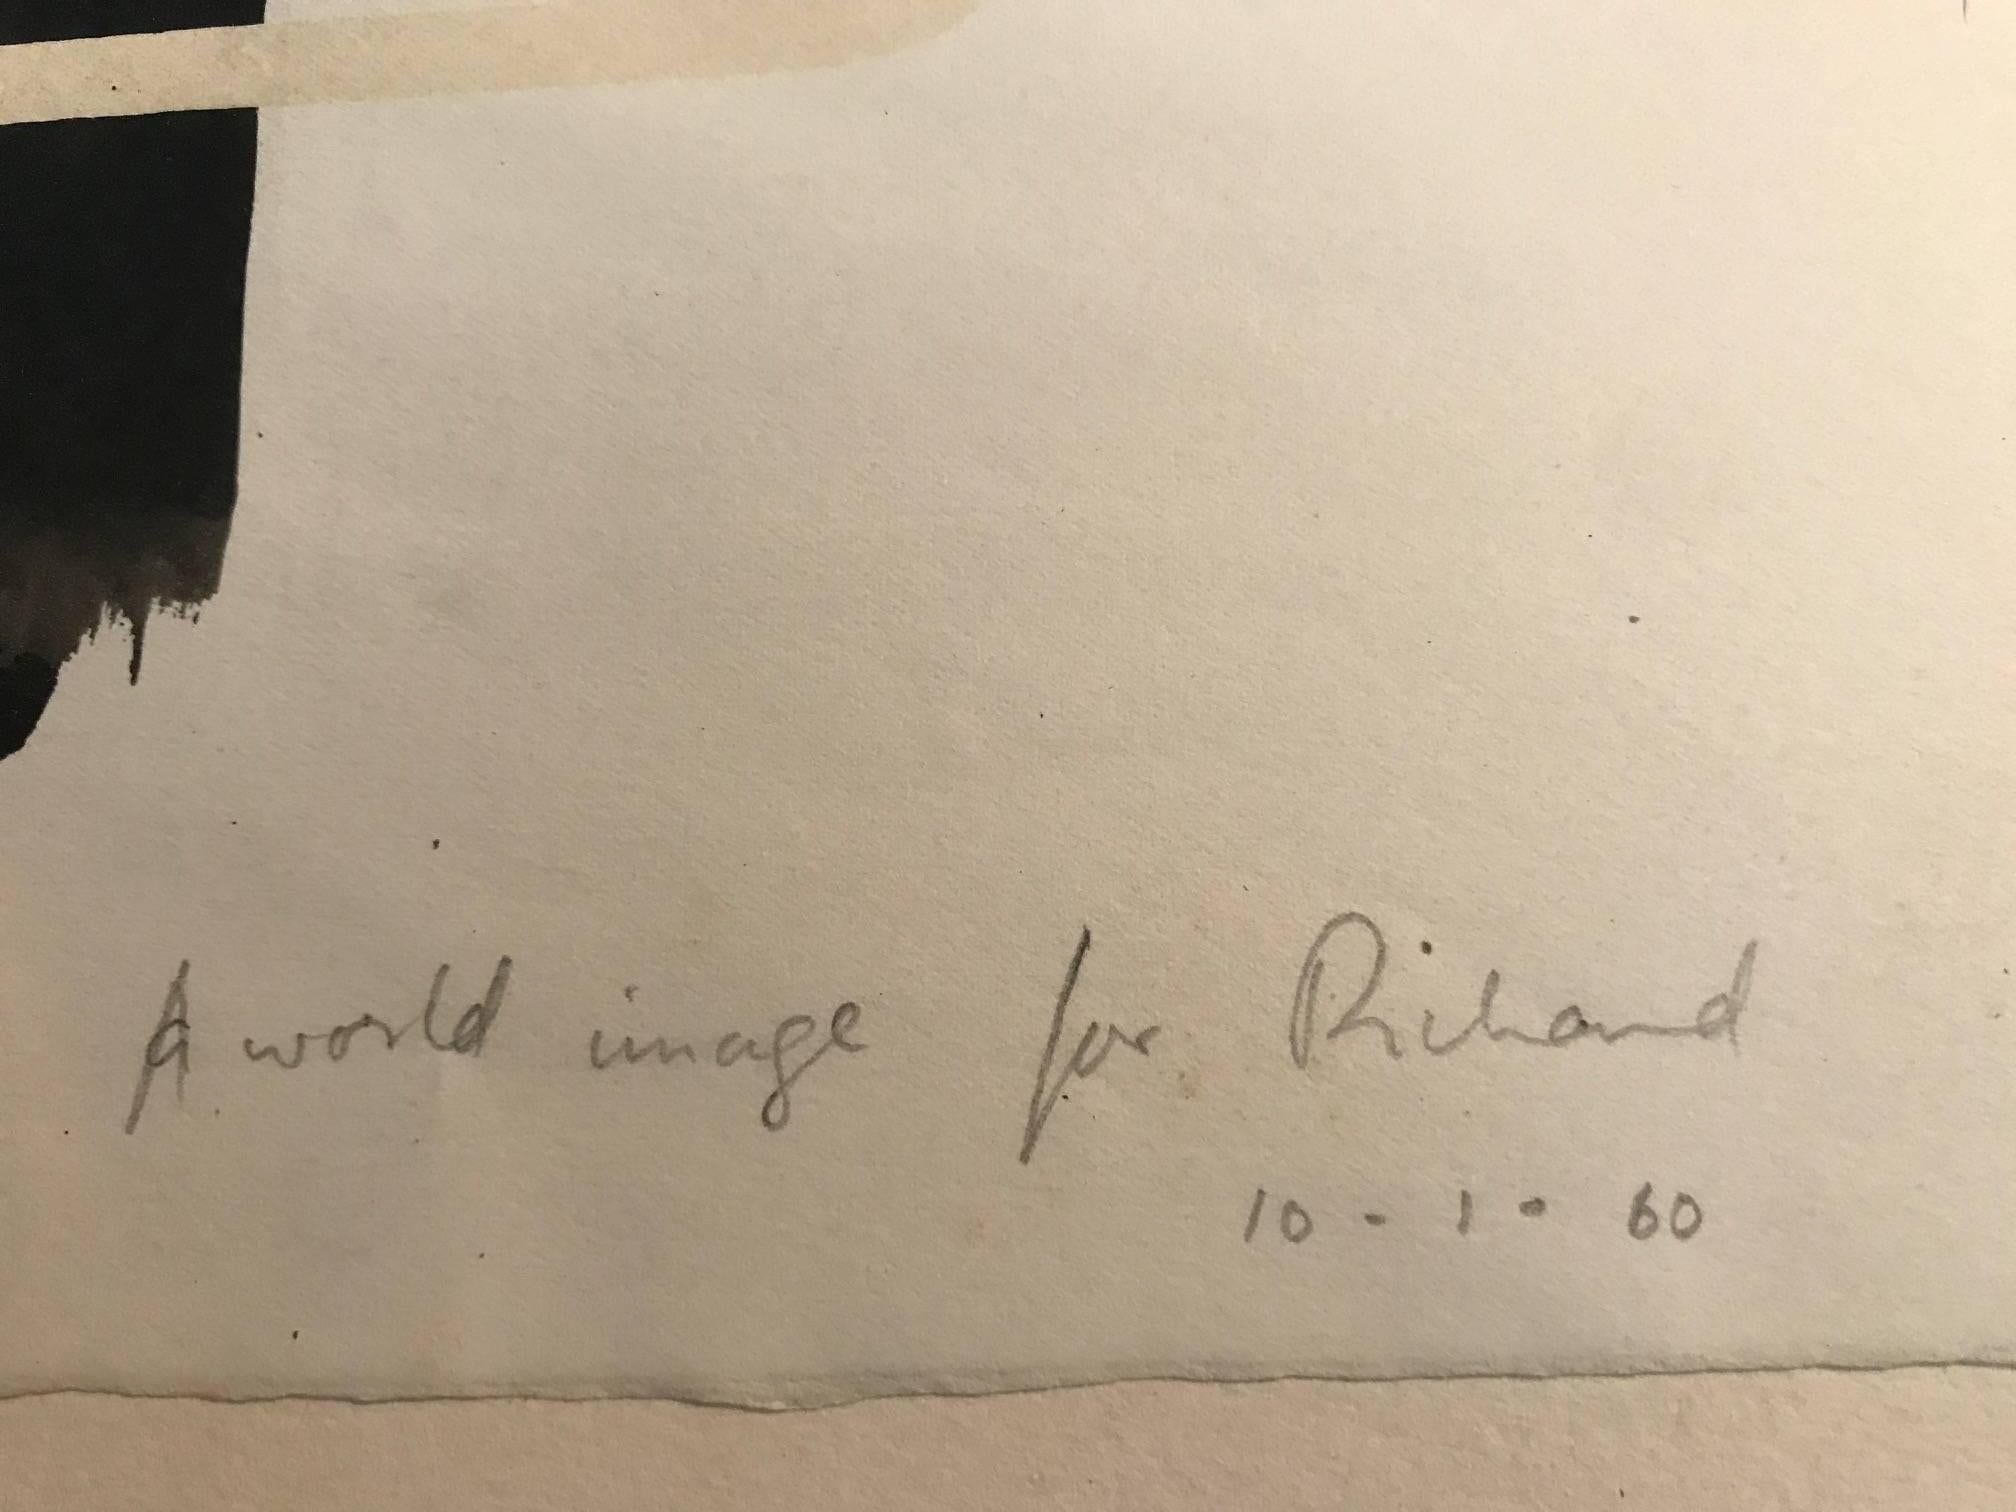 A world image for Richard
10 - 1 - 60